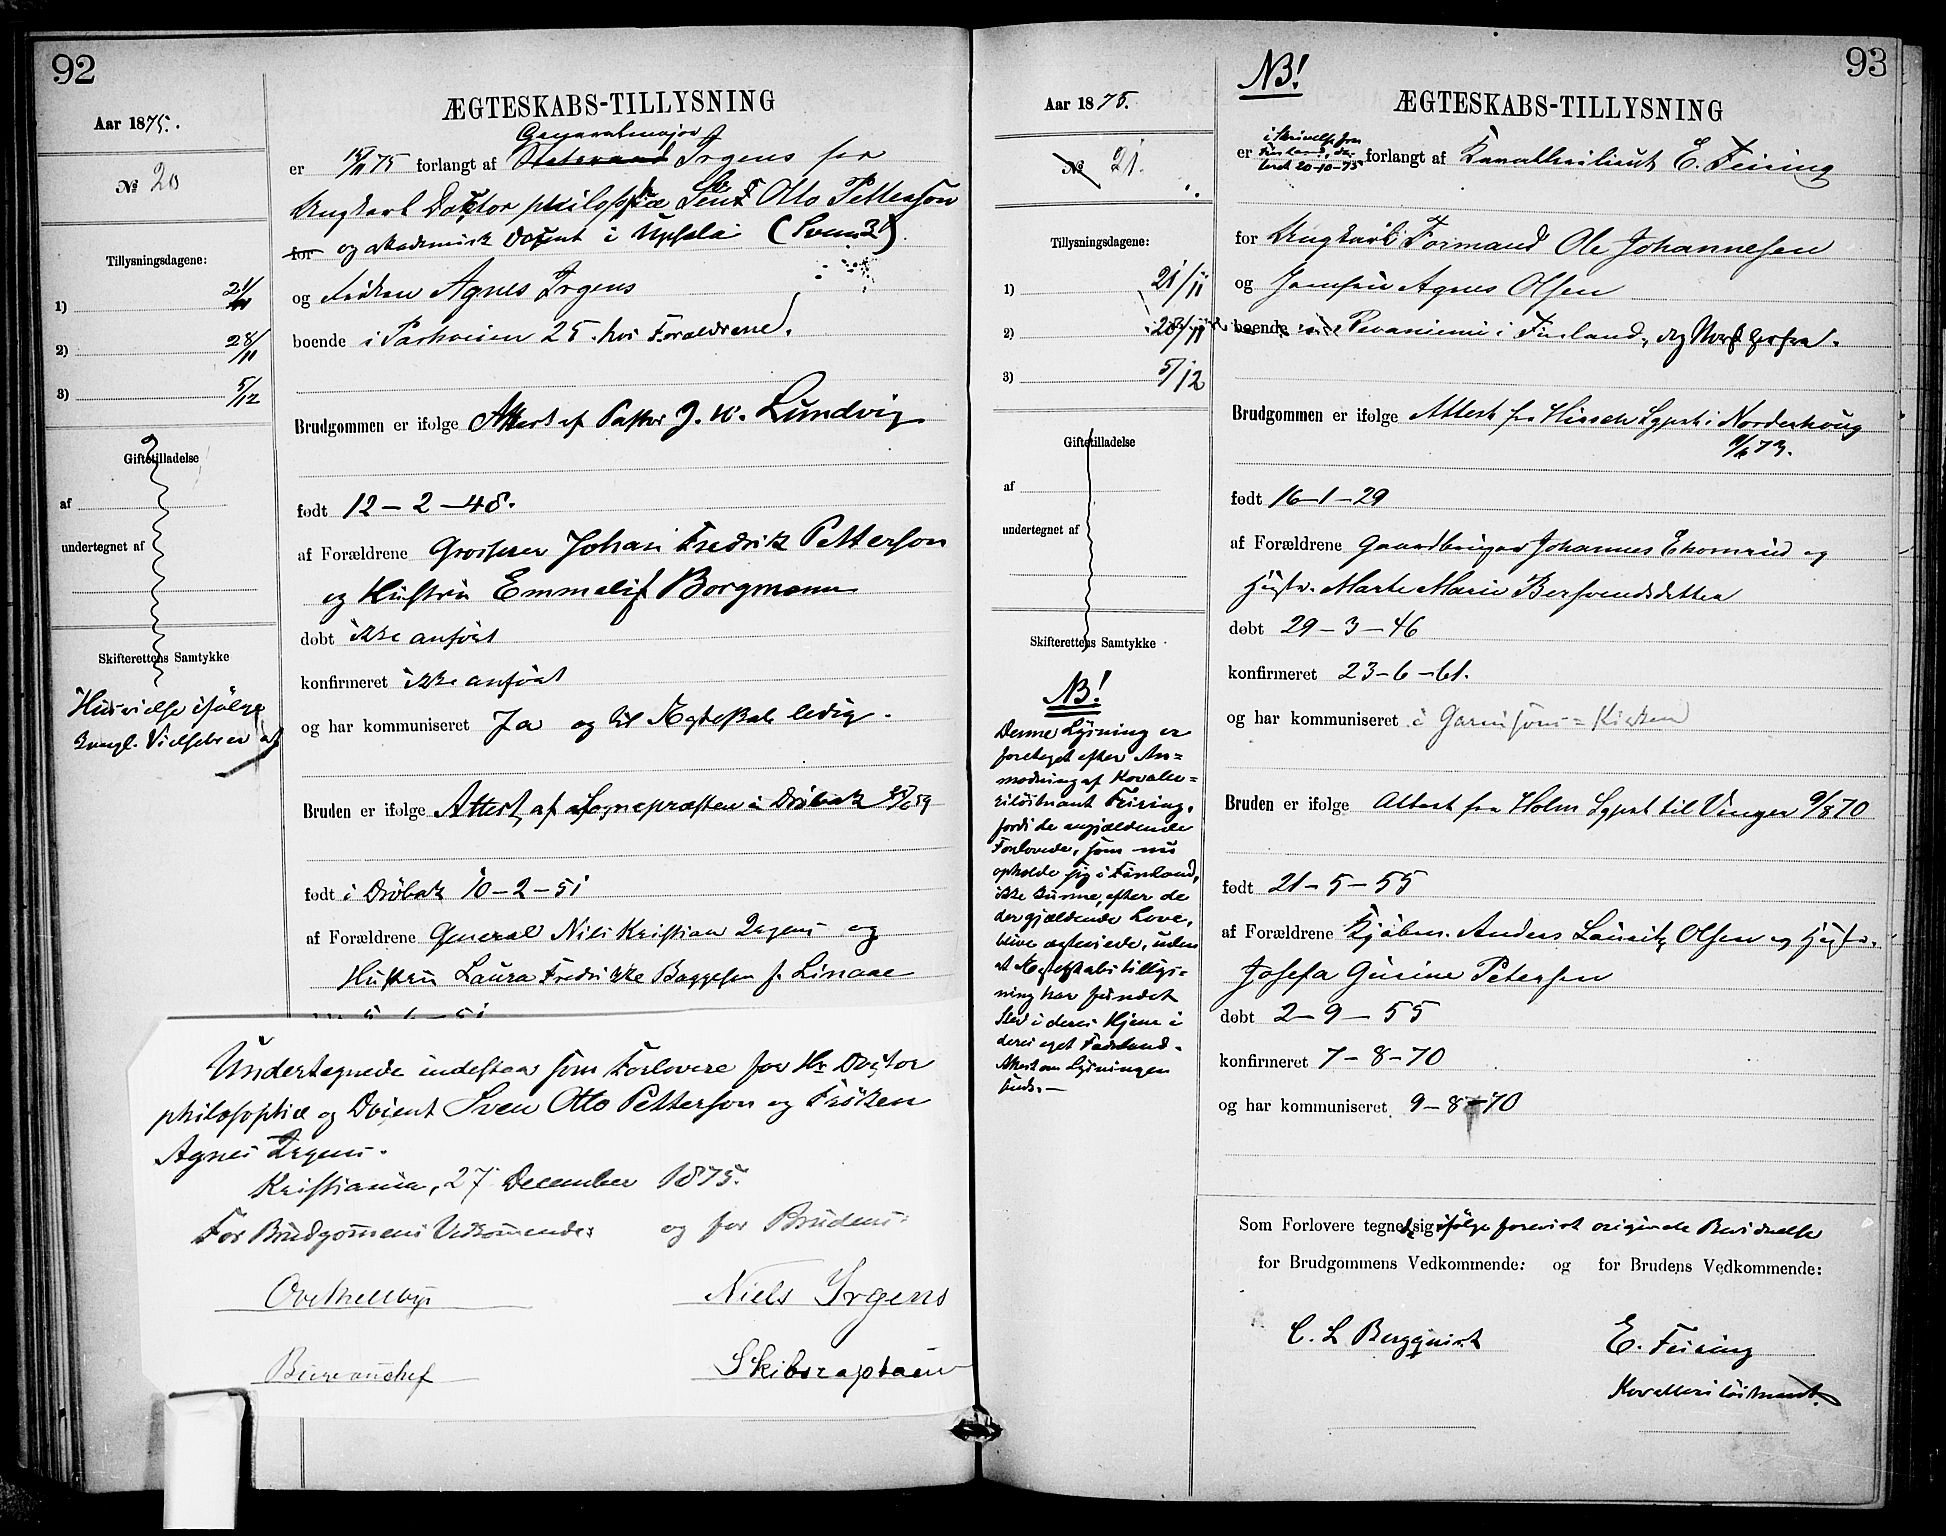 92
ÆGTESKABS-TILLYSNING
Aar 1875.
№ 20
Tillysningsdagene:
1) 21/11
2) 28/11
3) 5/12
Giftetilladelse
af
undertegnet af
Skifterettens Samtykke
Husvielse ifølge
Kongl. Vielsebrev af
Generalmajor
er 18/11 75 forlangt af Irgens for
Ungkarl Doctor philosophiæ Sven Otto Petterson
for og akademisk Docent i Upsala (Svensk)
og Frøken Agnes Irgens
boende i Parkveien 25. hos Forældrene.
Brudgommen er ifølge Attest af Pastor J. W. Lundvig
født 12 – 2 – 48.
af Forældrene Grosserer Johan Fredrik Petterson
og Hustru Emmelif Borgmann
døbt ikke anført
konfirmeret ikke anført
og har kommuniseret Ja og til Ægteskab ledig.
Bruden er ifølge Attest af Sognepræsten i Drøbak 59
født i Drøbak 10 – 2 – 51
af Forældrene General Nils Kristian Irgens og
Hustru Laura Fredrikke Baggesen f. Linaae
Undertegnede indestaar som Forlovere for Hr Doctor
philosophiæ og Docent Sven Otto Petterson og Frøken
Agnes Irgens.
Kristiania, 27 December 1875.
For Brudgommens Vedkommende: og for Brudens:
Niels Irgens
Bureauchef Skibscaptain
93
NB!
ÆGTESKABS-TILLYSNING
Aar 1875.
№ 21.
Tillysningsdagene:
1) 21/11
2) 28/11
3) 5/12
Giftetilladelse
af
undertegnet af
Skifterettens Samtykke
NB!
Denne Lysning er
foretaget efter An=
modning af Kavaleri=
løitnant Feiring,
fordi de angjældende
Forlovede, som nu
opholde sig i Finland,
ikke kunne, efter de
der gjældende Love,
blive ægteviede, uden
at Ægteskabstillys=
ning har fundet
Sted i deres Hjem i
deres eget Fædreland.
Attest om Lysningen
i Skrivelse fra
Finland, da-
teret 20-10-75
er forlangt af Kavallerilieut E. Feiring
for Ungkarl Formand Ole Johannesen
og Jomfru Agnes Olsen
boende i Finland, dog Norsk
Brudgommen er ifølge Attest fra Hirsch Sgprst i Norderhoug
9/6 73.
født 16-1-29
af Forældrene Gaardbruger Johannes og
Hustr. Marte Marie Bersvendsdatter
døbt 29 – 3 – 46
konfirmeret 23-6-61.
og har kommuniseret i Garnisons=Kirken
Bruden er ifølge Attest fra Holm Sgprst til Vinger 9/8 70
født 21-5-55
af Forældrene Kjøbm. Anders Lauritz Olsen og Hustr.
Josefa Gurine Petersen
døbt 2-9-55
konfirmeret 7-8-70
og har kommuniseret 9-8-70
Som Forlovere tegnet sig ifølge forevist originale Bevidnelse
for Brudgommens Vedkommende: og for Brudens Vedkommende:
C. L Bergquist E. Feiring
Kavalleriløitnant.